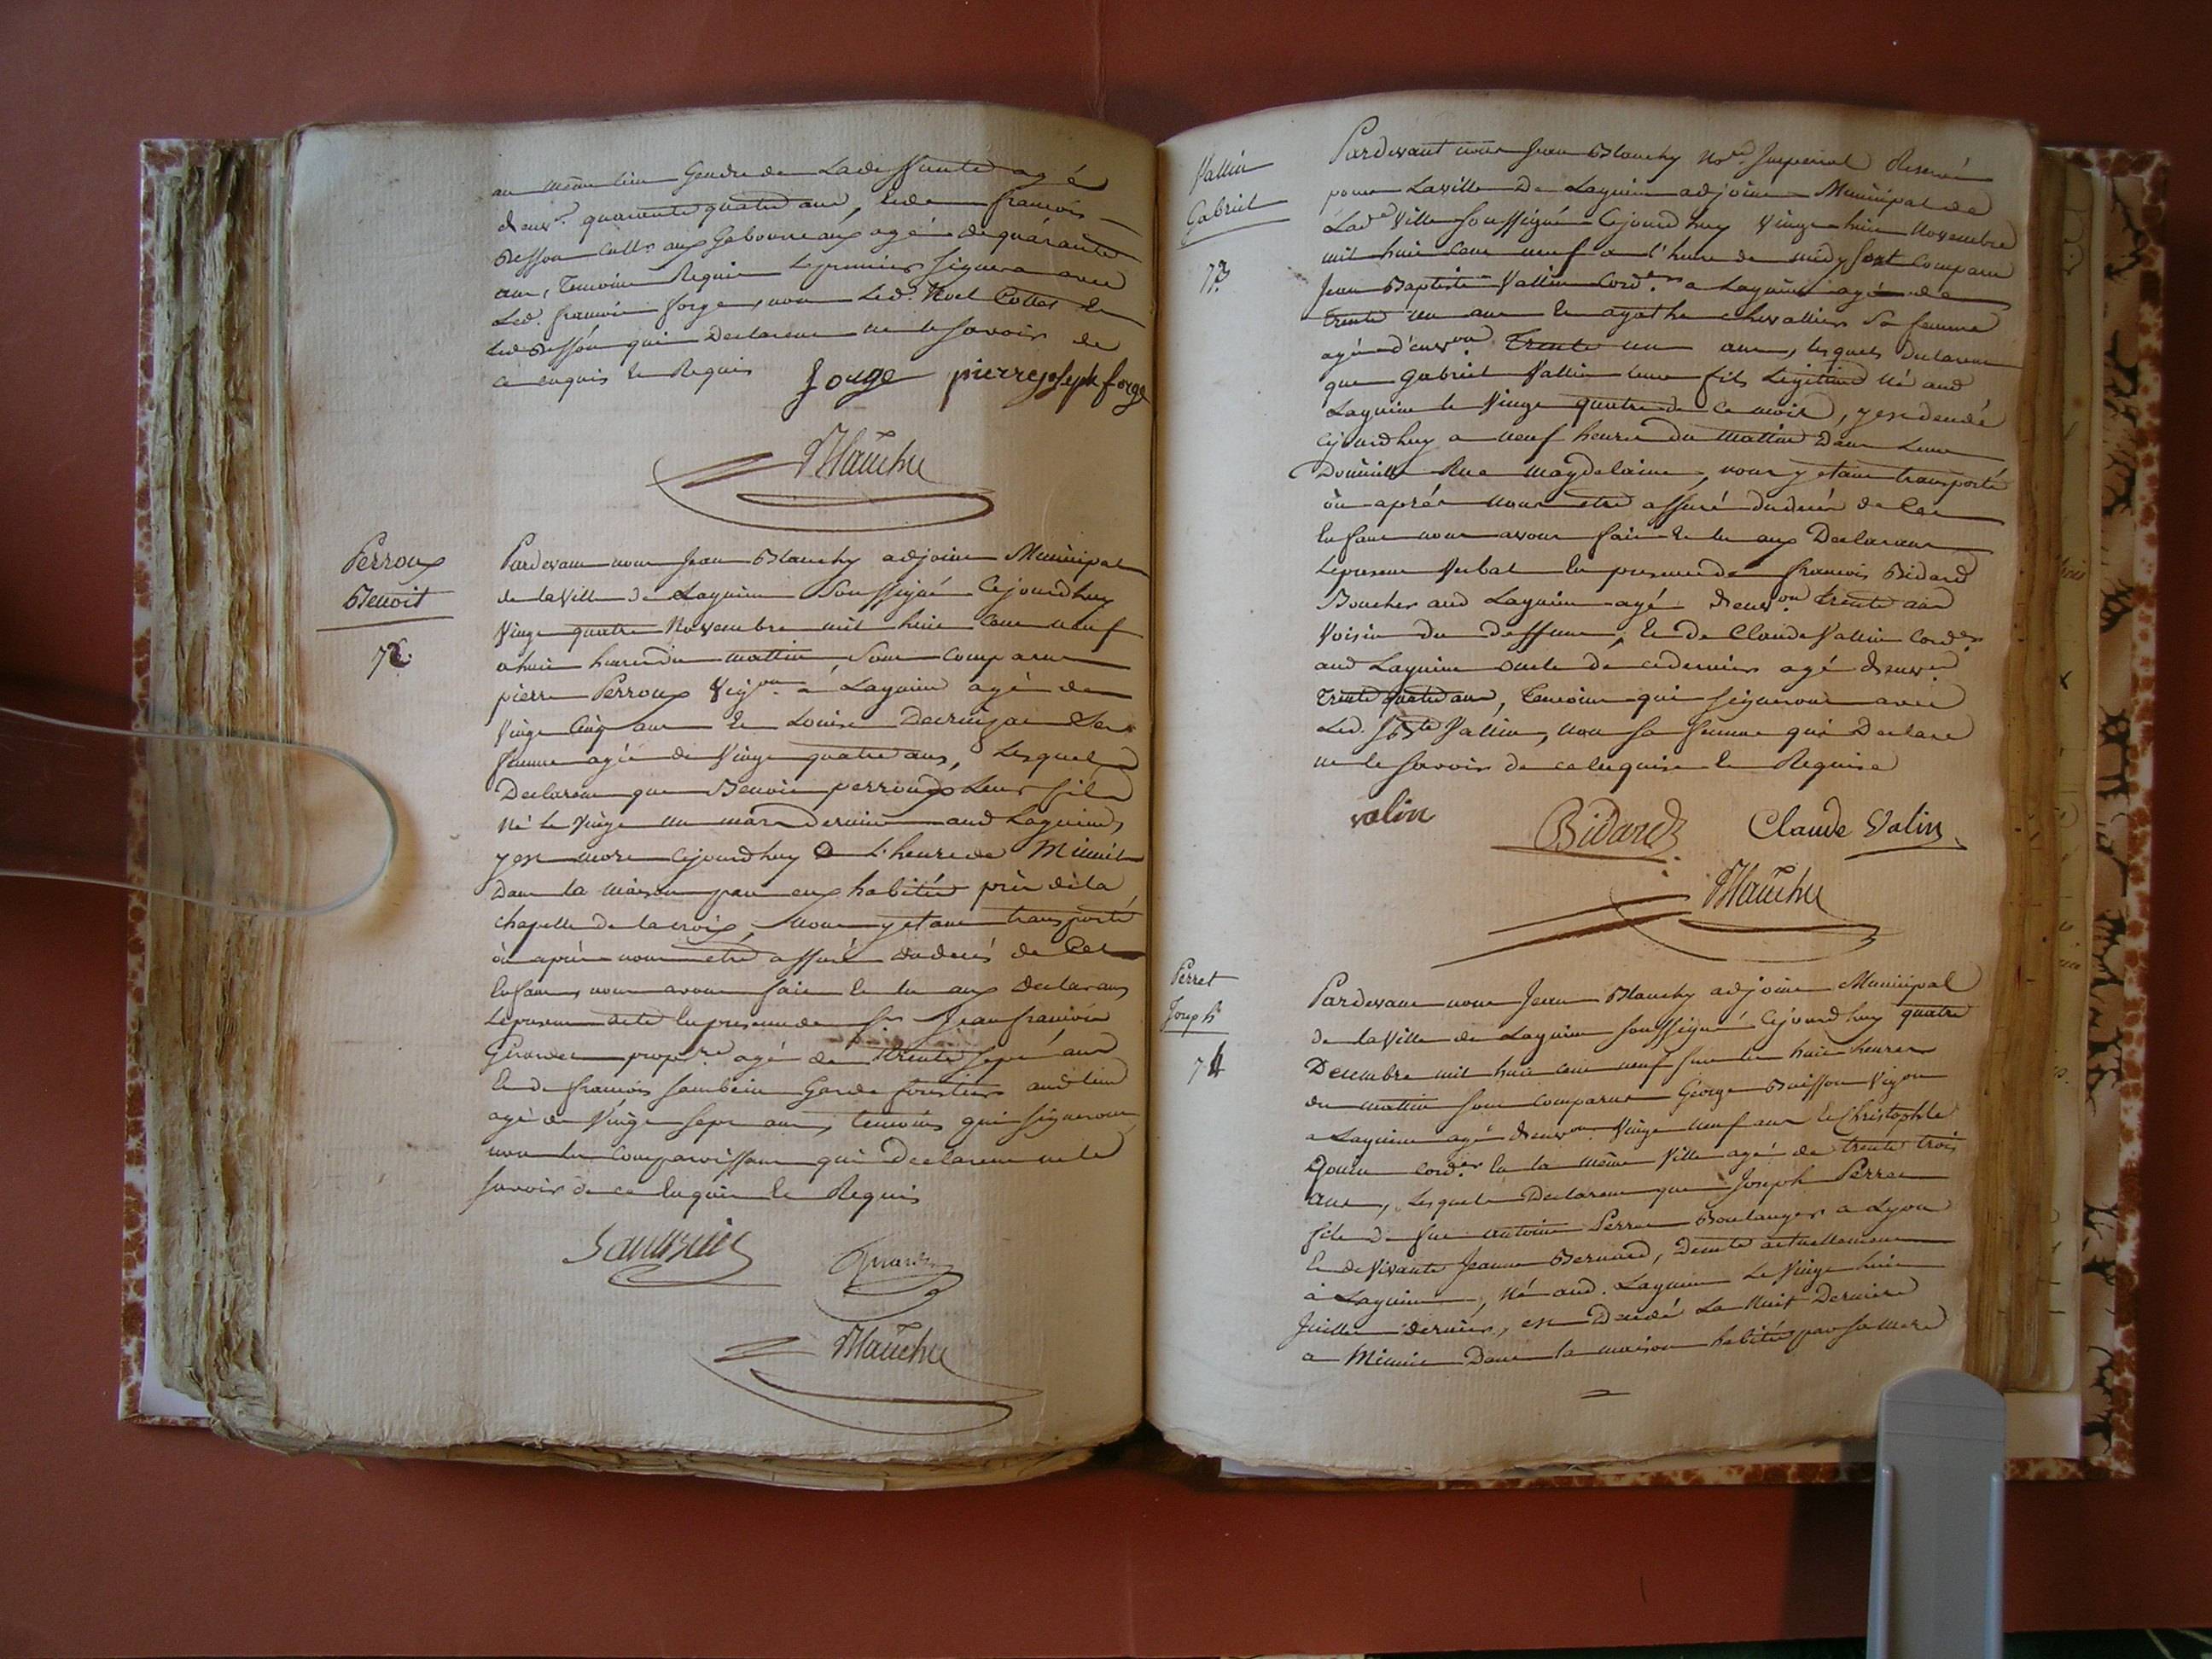 au même lieu Gendre de Lade deffunte agé
d'env.on quarante quatre ans, & de francois
Besson cult.r aux Gabourreaux agé de quarante
ans, temoins Requis le premier signera avec
Led. francois forge, non Led. Noel Collet &
Led. Besson qui Declarent ne le savoir de
ce enquis & Requis
forge pierre joseph forge
Blanchy
Perroux
Benoit
72
Pardevant nous Jean Blanchy adjoint Municipal
de la Ville de Lagnieu Soussigné Cejourdhuy
Vingt quatre Novembre mil huit Cent neuf
a huit heures du mattin, Sont comparus
pierre Perroux Vig.on a Lagnieu agé de
Vingt Cinq ans & Louise Sa
femme agée de Vingt quatre ans, Lesquels
Declarent que Benoit perroux Leur fils
Né le Vingt un mars dernier aud Lagnieu,
y est mort Cejourdhuy a L'heure de Minuit
Dans la maison par eux habitée près de la
chapelle de la croix, Nous y étant transporté
où après nous être assuré du decès de Cet
Enfant, nous avons fait & lu aux declarans
Le present acte En presence de s.r Jean francois
Girardet propr.re agé de trente sept ans
& de francois Sambein Garde forestier aud lieu
agé de Vingt sept ans, temoins qui signeront
non les comparoissans qui Declarent ne le
savoir de ce Enquis & Requis
Sambein Girardet
Blanchy
Vallin
Gabriel
73
Pardevant nous Jean Blanchy No.re Imperial Reservé
pour La ville De Lagnieu adjoint Municipal de
Lad.e Ville Soussigné Cejourdhuy Vingt huit Novembre
mil huit Cent neuf a l'heure de midy sont Comparu
Jean Baptiste Vallin Cord.er a Lagnieu agé de
trente un ans & agathe chevallier Sa femme
agée d'env.on Trente un ans, lesquels declarent
que Gabriel Vallin leur fils Legitime Né aud
Lagnieu le Vingt quatre de Ce mois, y est decedé
cejourdhuy a neuf heures du mattin Dans Leur
Domicille Rue magdelaine, nous y étant transporté
où après nous être assuré du decès de Cet
Enfant nous avons fait & lu aux Declarans
Le present Verbal En presence de francois Bidard
Boucher aud Lagnieu agé d'env.on trente ans
Voisin du deffunt, & de Claude Vallin Cord.er
aud Lagnieu oncle de ce dernier agé d'env.on
trente quatre ans, temoins qui signeront avec
Led. J Bte Vallin, non sa femme qui Declare
ne le savoir de ce Enquise & Requise
valin Bidard Claude Valin
Blanchy
Perret
Joseph
74
Pardevant nous Jean Blanchy adjoint Municipal
de la Ville de Lagnieu soussigné Cejourdhuy quatre
Decembre mil huit cent neuf sur les huit heures
du mattin sont comparus George Buisson Vigon
a Lagnieu agé d'env.on Vingt neuf ans & Christophle
Gouin Cord.er En la même Ville agé de trente trois
ans, Lesquels Declarent que Joseph Perret
fils de feu antoine Perret Boulanger a Lyon
& de Vivante Jeanne Bernard, actuellement
à Lagnieu, Né aud. Lagnieu Le Vingt huit
Juillet dernier, est Decedé La Nuit Derniere
a Minuit Dans la maison habitée par sa mere